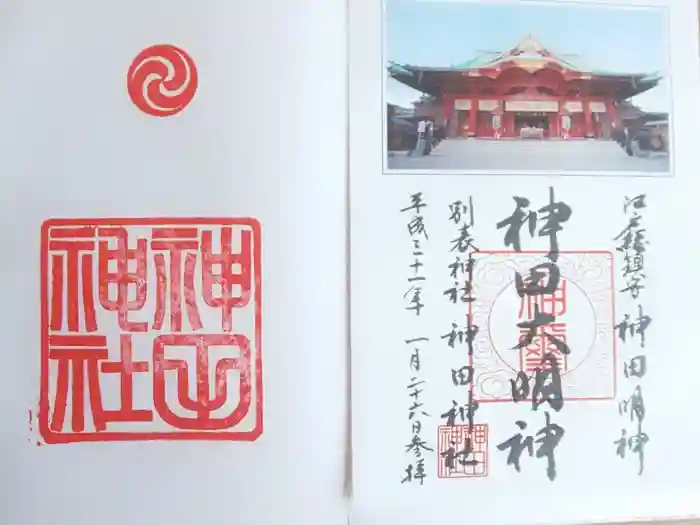 神田
神社
江戸総鎮守 神田明神
神田大明神
別表神社 神田神社
神田
神社
平成三十一年 一月二十六日参拝